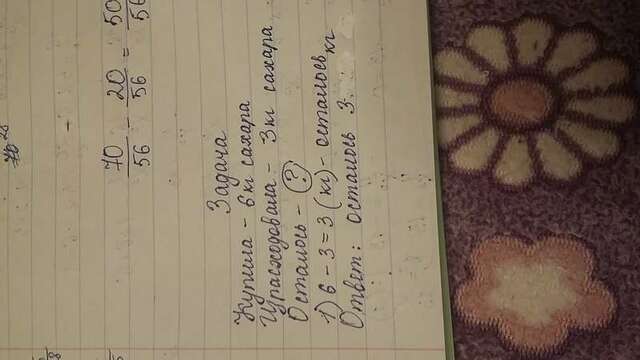 70/56 - 20/56 = 50/56
Задача
Купила - 6 кг сахара
Израсходовала - 3 кг сахара
Осталось - ?
1) 6 - 3 = 3 (кг) - осталось
Ответ: осталось 3 кг